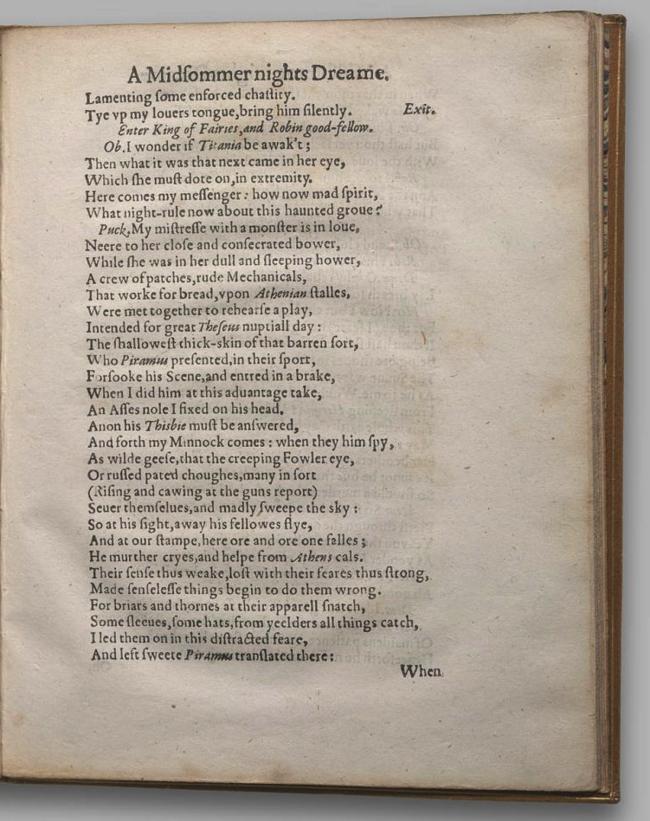 A Midſommer nights Dreame.
Lamenting ſome enforced chaſtity.
Tye vp my louers tongue,bring him ſilently. Exit.
Enter King of Fairies,and Robin good-fellow.
Ob. I wonder if Titania be awak't ;
Then what it was that next came in her eye,
Which ſhe muſt dote on,in extremity.
Here comes my meſſenger : how now mad ſpirit,
What night-rule now about this haunted groue ?
Puck, My miſtreſſe with a monſter is in loue,
Neere to her cloſe and conſecrated bower,
While ſhe was in her dull and ſleeping hower,
A crew of patches,rude Mechanicals,
That worke for bread,vpon Athenian ſtalles,
Were met together to rehearſe a play,
Intended for great Theſeus nuptiall day :
The ſhalloweſt thick-skin of that barren ſort,
Who Piramus preſented,in their ſport,
Forſooke his Scene,and entred in a brake,
When I did him at this aduantage take,
An Aſſes nole I fixed on his head.
Anon his Thisbie muſt be anſwered,
And forth my Minnock comes : when they him ſpy,
As wilde geeſe,that the creeping Fowler eye,
Or ruſſed pated choughes,many in ſort
(Riſing and cawing at the guns report)
Seuer themſelues,and madly ſweepe the sky :
So at his ſight,away his fellowes flye,
And at our ſtampe,here ore and ore one falles ;
He murther cryes,and helpe from Athens cals.
Their ſenſe thus weake,loſt with their feares thus ſtrong,
Made ſenſeleſſe things begin to do them wrong.
For briars and thornes at their apparell ſnatch,
Some ſleeues,ſome hats,from yeelders all things catch,
I led them on in this diſtracted feare,
And left ſweete Piramus tranſlated there :
When